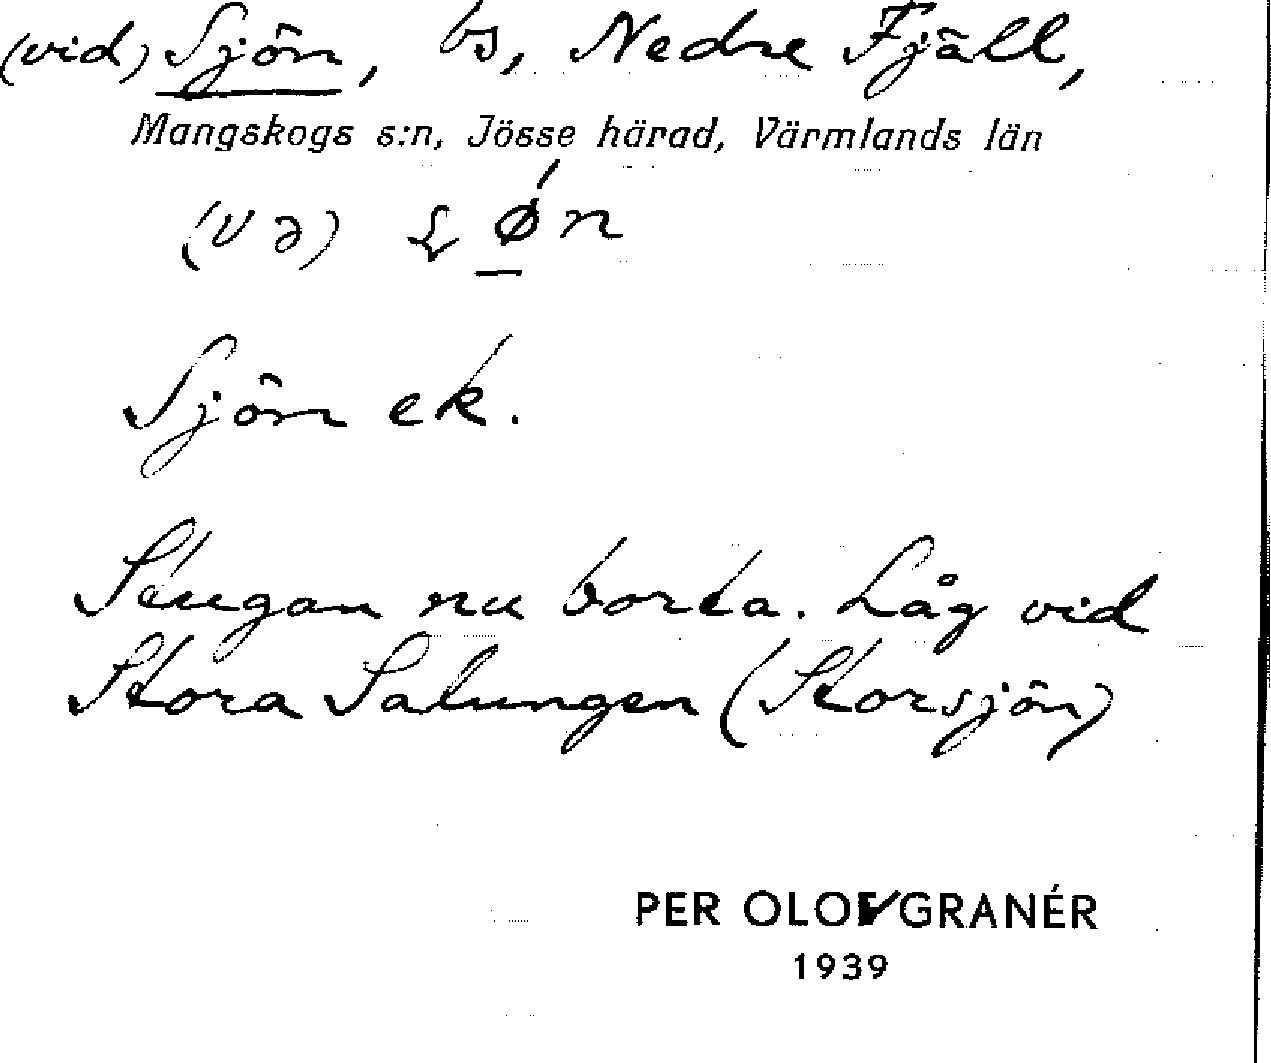 (vid) Sjön, bs, Nedre Fjäll,
Mangskogs s:n, Jösse härad, Värmlands län
(və)
Sjön ek.
Stugan nu borta. Låg vid
Stora Salungen (Storsjön)
PER OLOV GRANÉR
1939